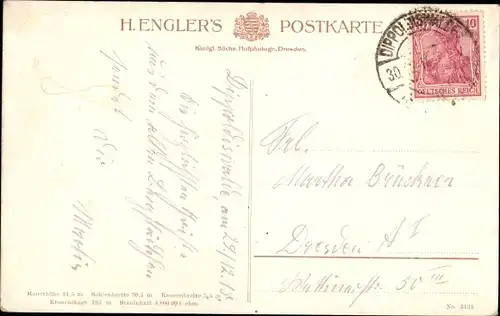 H. ENGLER'S POSTKARTE
Königl. Sächs. Hofphotogr., Dresden.
DIPPOLDISWALDE
30.
10
DEUTSCHES REICH
Dippoldiswalde, am 29/12.15.
Die herzlichsten Grüße
aus dem alten
sendet
Die
Frl.
Martha Brückner
Dresden A I
Wettinerstr 50 III
Mauerhöhe 34,5 m Sohlenbreite 30,5 m Kronenbreite 5,5 m
Kronenlänge 193 m Stauinhalt
No. 2423